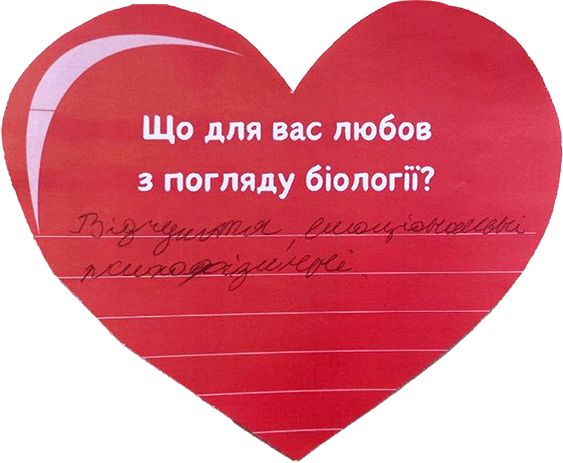 Що для вас любов
з погляду біології?
Відчуття, емоціональні
психофізичні.